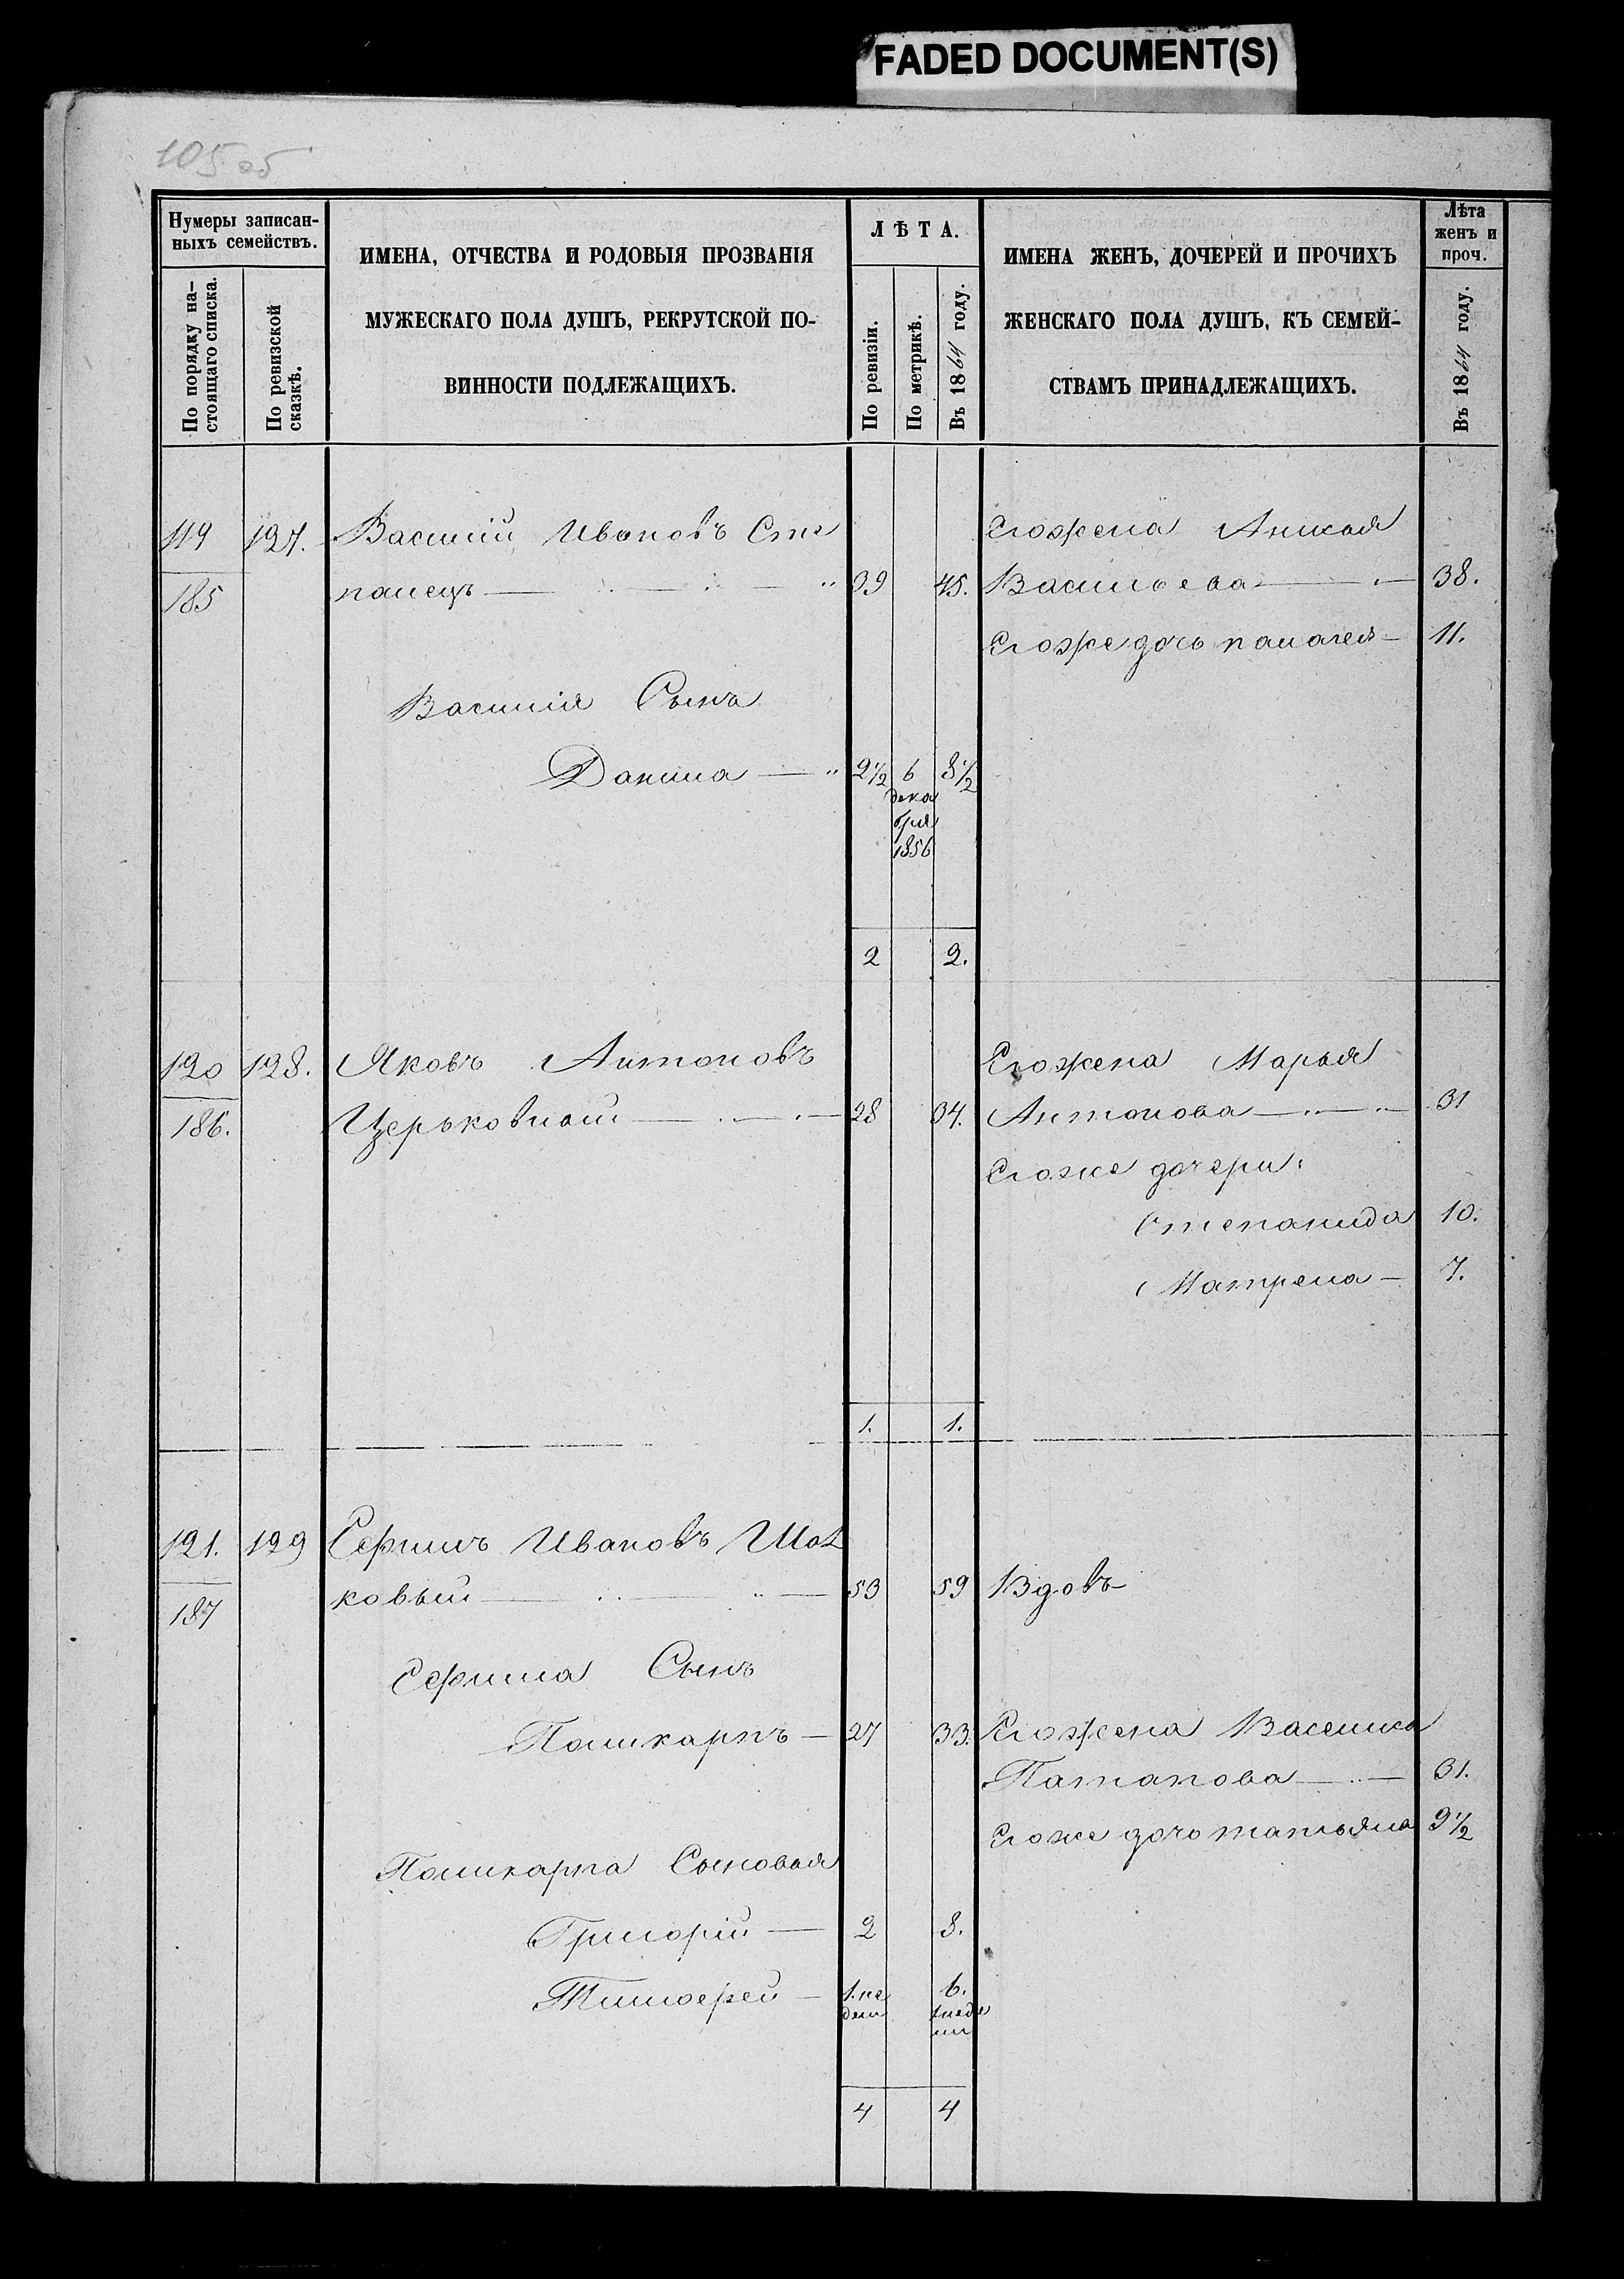 FADED DOCUMENT(S)
105 об
Нумеры записан-
ныхъ семействъ.
По порядку на-
стоящаго списка.
По ревизской
сказкѣ.
ИМЕНА, ОТЧЕСТВА И РОДОВЫЯ ПРОЗВАНІЯ
МУЖЕСКАГО ПОЛА ДУШЪ, РЕКРУТСКОЙ ПО-
ВИННОСТИ ПОДЛЕЖАЩИХЪ.
ЛѢТА.
По ревизіи.
По метрикѣ.
Въ 1864 году.
ИМЕНА ЖЕНЪ, ДОЧЕРЕЙ И ПРОЧИХЪ
ЖЕНСКАГО ПОЛА ДУШЪ, КЪ СЕМЕЙ-
СТВАМЪ ПРИНАДЛЕЖАЩИХЪ.
Лѣта
женъ и
проч.
Въ 1864 году.
119 127. Василій Ивановъ Сте Егожена
185 панецъ 39 45. Васильева 38.
Егоже дочь палагея 11.
Василія Сынъ
Данила 2½ 6 8½
дека
бря
1856
2 2.
120 128. Яковъ Антоновъ Егожена Марья
186. Церьковный 28 34. Антонова 31
Егоже дочери:
Степанида 10.
Матрена 7.
1. 1.
121. 129 Сергилъ Ивановъ
187 ковый 53 59 Вдовъ
Сергила Сынъ
Поликарпъ 27 33. Егожена Василиса
Патапова 31.
Егоже дочь татьяна 9½
Поликарпа Сыновья
Григорій 2 8.
Тимофей 1.не 6.
дели 1неде
ли
4 4